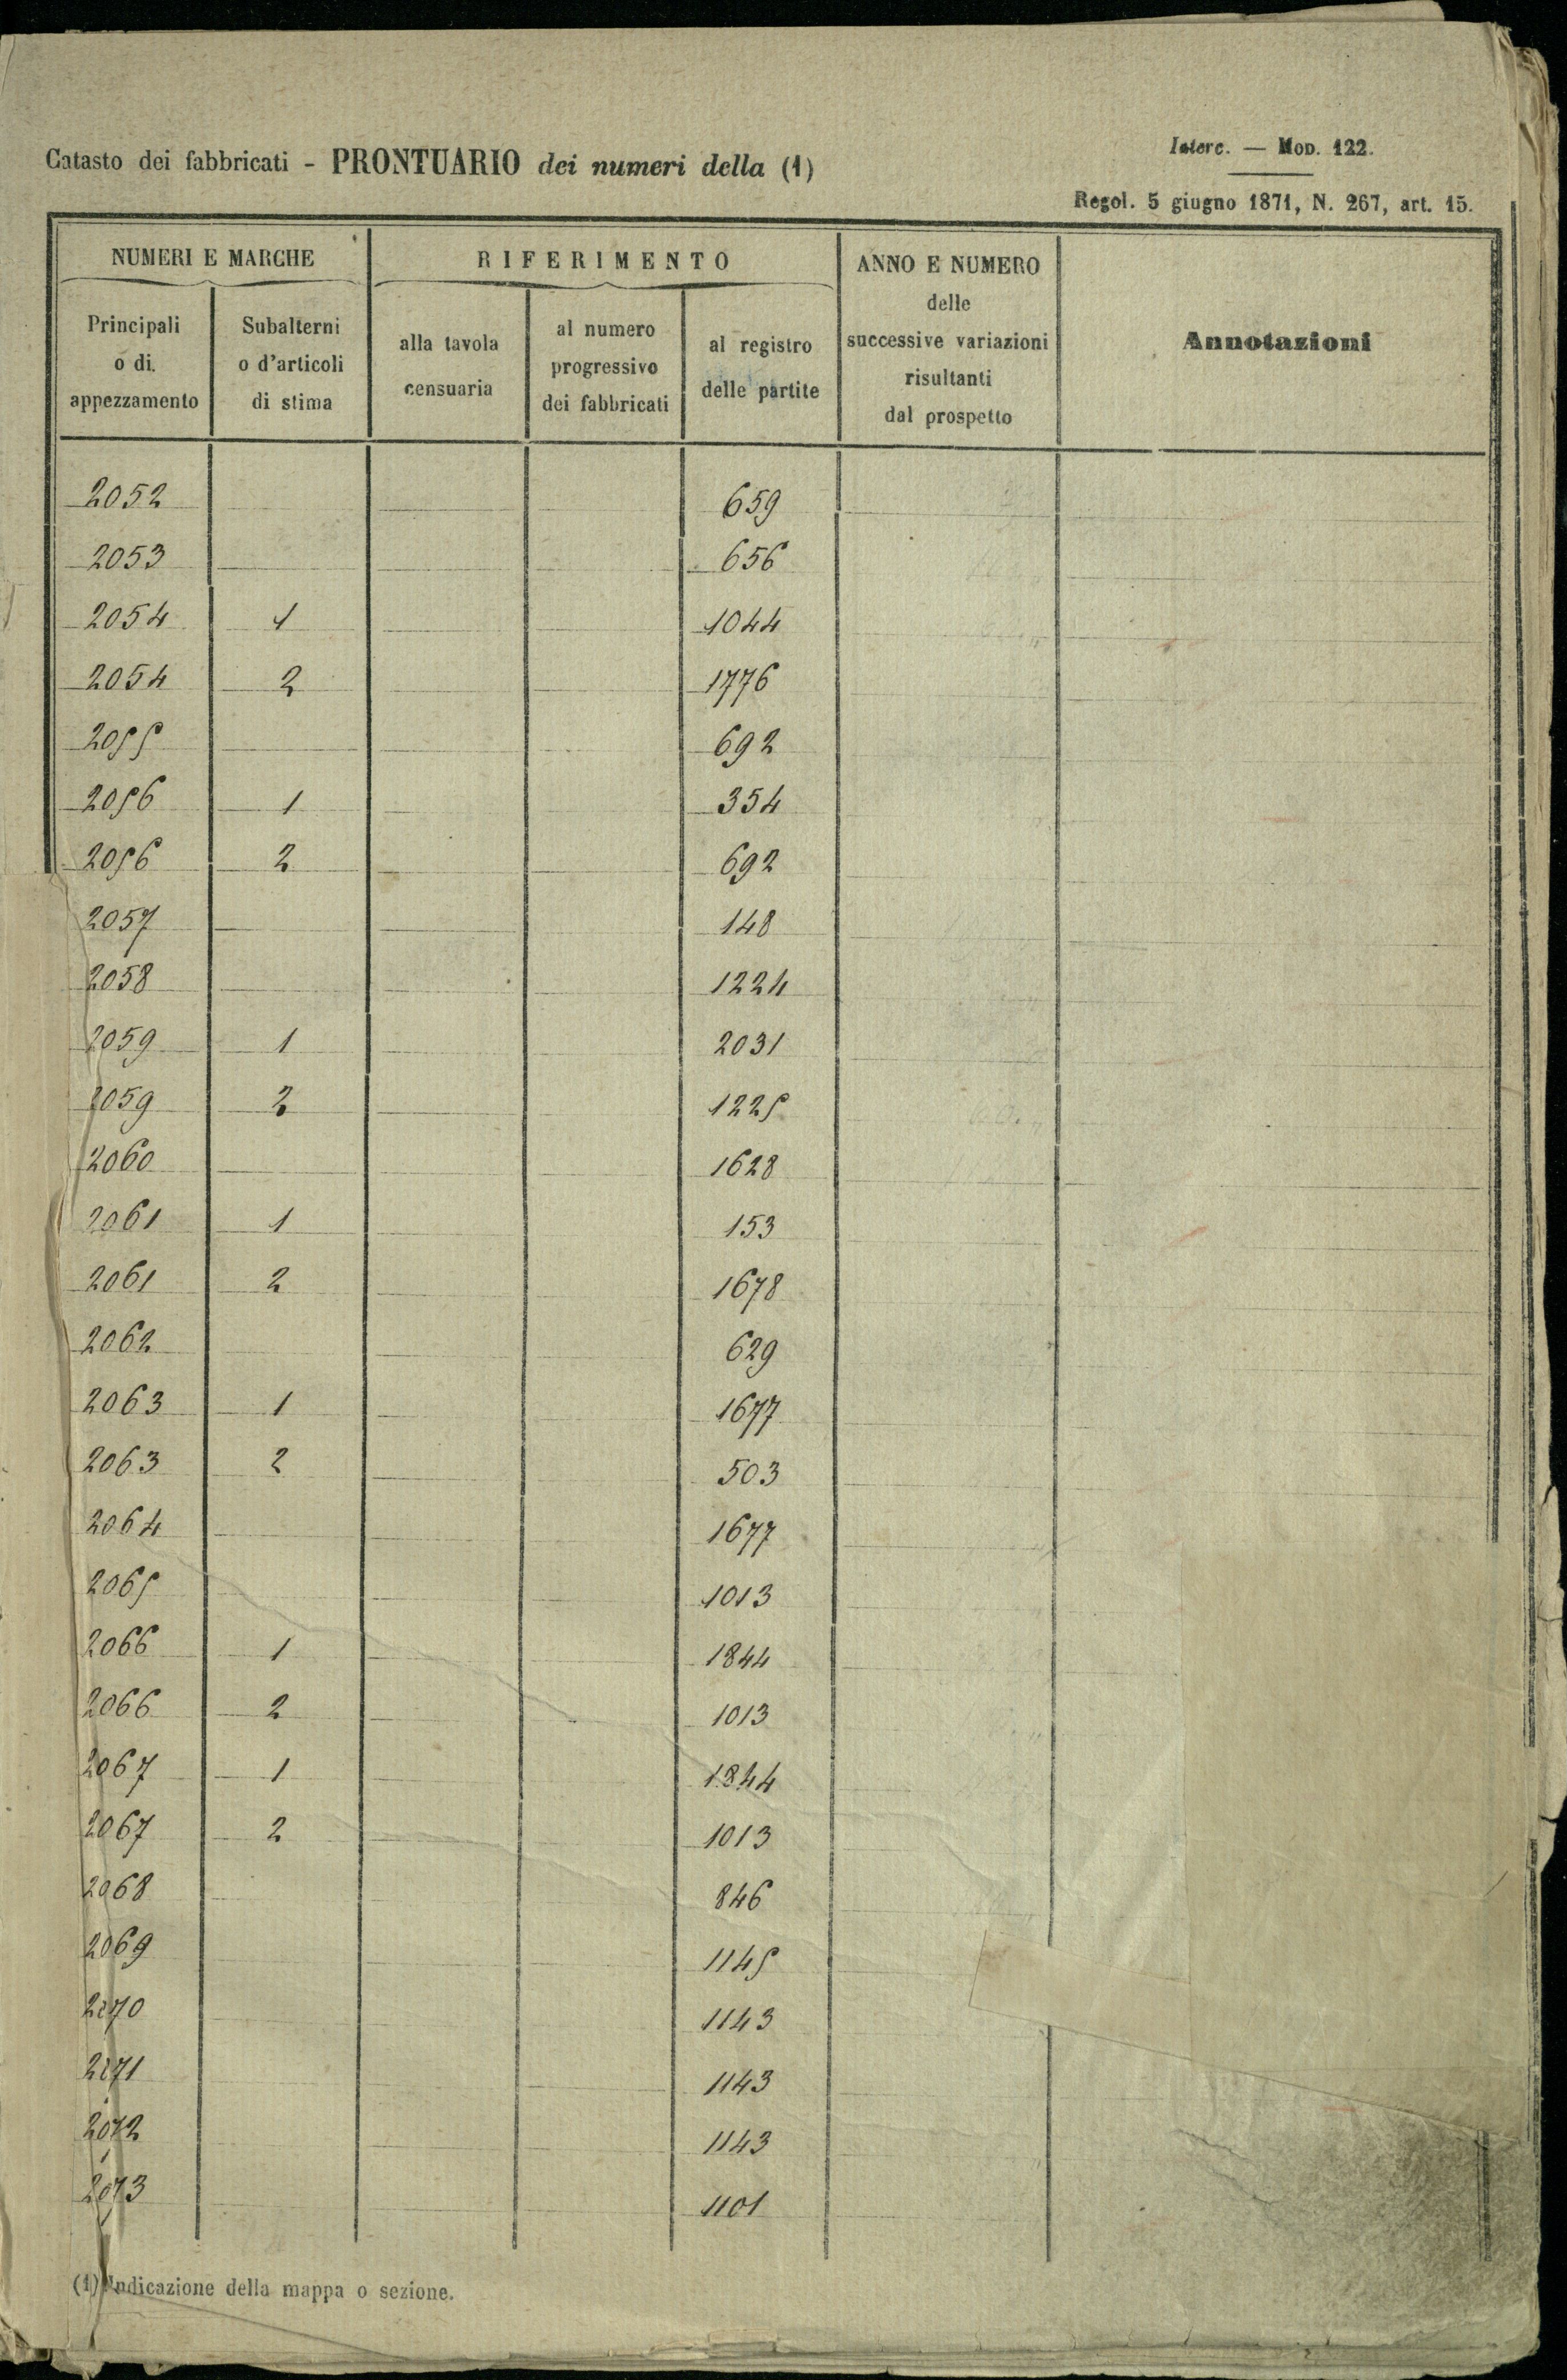 Catasto dei fabbricati - PRONTUARIO dei numeri della (1)
Interc. — Mod. 122.
Regol. 5 giugno 1871, N. 267, art. 15.
NUMERI E MARCHE
RIFERIMENTO
ANNO E NUMERO delle successive variazioni risultanti dal prospetto
Annotazioni
Principali o di appezzamento
Subalterni o d'articoli di stima
alla tavola censuaria
al numero progressivo dei fabbricati
al registro delle partite
2052 659
2053 656
2054 1 1044
2054 2 1776
2055 692
2056 1 354
2056 2 692
2057 148
2058 1224
2059 1 2031
2059 2 1225
2060 1628
2061 1 153
2061 2 1678
2062 629
2063 1 1677
2063 2 503
2064 1677
2065 1013
2066 1 1844
2066 2 1013
2067 1 1844
2067 2 1013
2068 846
2069 1145
2070 1143
2071 1143
2072 1143
2073 1101
(1) Indicazione della mappa o sezione.